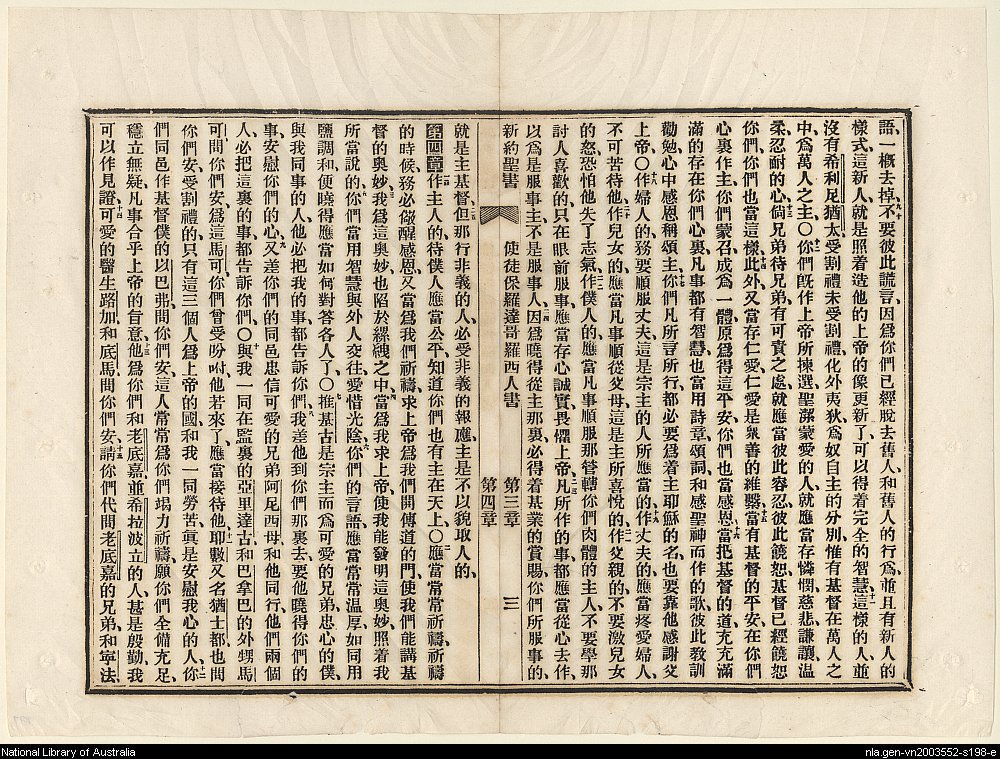 語、一概去掉、九十不要彼此謊言、因爲你們已經脫去舊人、和舊人的行爲、並且有新人的
樣式、這新人就是照着造他的上帝的像更新了、可以得着完全的智慧、十一這樣的人、並
沒有希利尼猶太、受割禮未受割禮、化外夷狄、爲奴自主的分別、惟有基督在萬人之
中、爲萬人之主、○十二你們旣作上帝所揀選聖潔蒙愛的人、就應當存憐憫慈悲謙讓溫
柔忍耐的心、十三倘兄弟待兄弟、有可責之處、就應當彼此容忍、彼此饒恕、基督已經饒恕
你們、你們也當這樣、十四此外又當存仁愛、仁愛是衆善的維繫、十五當有基督的平安在你們
心裏作主、你們蒙召成爲一體、原爲得這平安、你們也當感恩、十六當把基督的道、充充滿
滿的存在你們心裏、凡事都有智慧、也當用詩章頌詞、和感聖神而作的歌、彼此敎訓
勸勉、心中感恩、稱頌主、十七你們凡所言所行、都必要爲着主耶穌的名、也要靠他感謝父
上帝、○十八作婦人的、務要順服丈夫、這是宗主的人所應當的、十九作丈夫的、應當疼愛婦人、
不可苦待他、二十作兒女的、應當凡事順從父母、這是主所喜悅的、二一作父親的、不要激兒女
的怒、恐怕他失了志氣、二二作僕人的、應當凡事順服那管轄你們肉體的主人、不要學那
討人喜歡的、只在眼前服事、應當存心誠實畏懼上帝、二三凡所作的事、都應當從心去作、
以爲是服事主、不是服事人、二四因爲曉得從主那裏、必得着基業的賞賜、你們所服事的、
新約聖書 使徒保羅達哥羅西人書 第三章 第四章 三
就是主基督、二五但那行非義的人、必受非義的報應、主是不以貌取人的、
第四章 一作主人的、待僕人應當公平、知道你們也有主在天上、○二應當常常祈禱、祈禱
的時候、務必儆醒感恩、三又當爲我們祈禱、求上帝爲我們開傳道的門、使我們能講基
督的奧妙、我爲這奧妙、也陷於縲絏之中、四當爲我求上帝、使我能發明這奧妙、照着我
所當說的、五你們當用智慧與外人交往、愛惜光陰、六你們的言語、應當常常温厚、如同用
鹽調和、便曉得應當如何對答各人了、○七推基古是宗主而爲可愛的兄弟、忠心的僕、
與我同事的人、他必把我的事都告訴你們、八我差他到你們那裏去、要他曉得你們的
事、安慰你們的心、九又差你們的同邑、忠信可愛的兄弟阿尼西母和他同行、他們兩個
人、必把這裏的事都告訴你們、○十與我一同在監裏的亞里達古、和巴拿巴的外甥馬
可問你們安、爲這馬可、你們曾受吩咐、他若來了、應當接待他、十一耶數又名猶士都、也問
你們安、受割禮的、只有這三個人爲上帝的國、和我一同勞苦、眞是安慰我心的人、十二你
們同邑作基督僕的以巴弗問你們安、這人常常爲你們竭力祈禱、願你們全備充足、
穩立無疑、凡事合乎上帝的旨意、十三他爲你們和老底嘉並希拉波立的人、甚是殷勤、我
可以作見證、十四可愛的醫生路加、和底馬問你們安、十五請你們代問老底嘉的兄弟、和寧法
National Library of Australia
nla.gen-vn2003552-s198-e